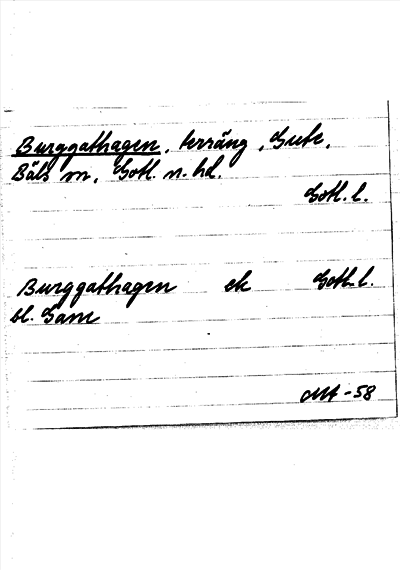 Burggathagen, terräng, Gute,
Bäls m, Gotl. n. hd.
Gotl. l.
Burggathagen ek Gotl. l.
bl. Sam
MA-58